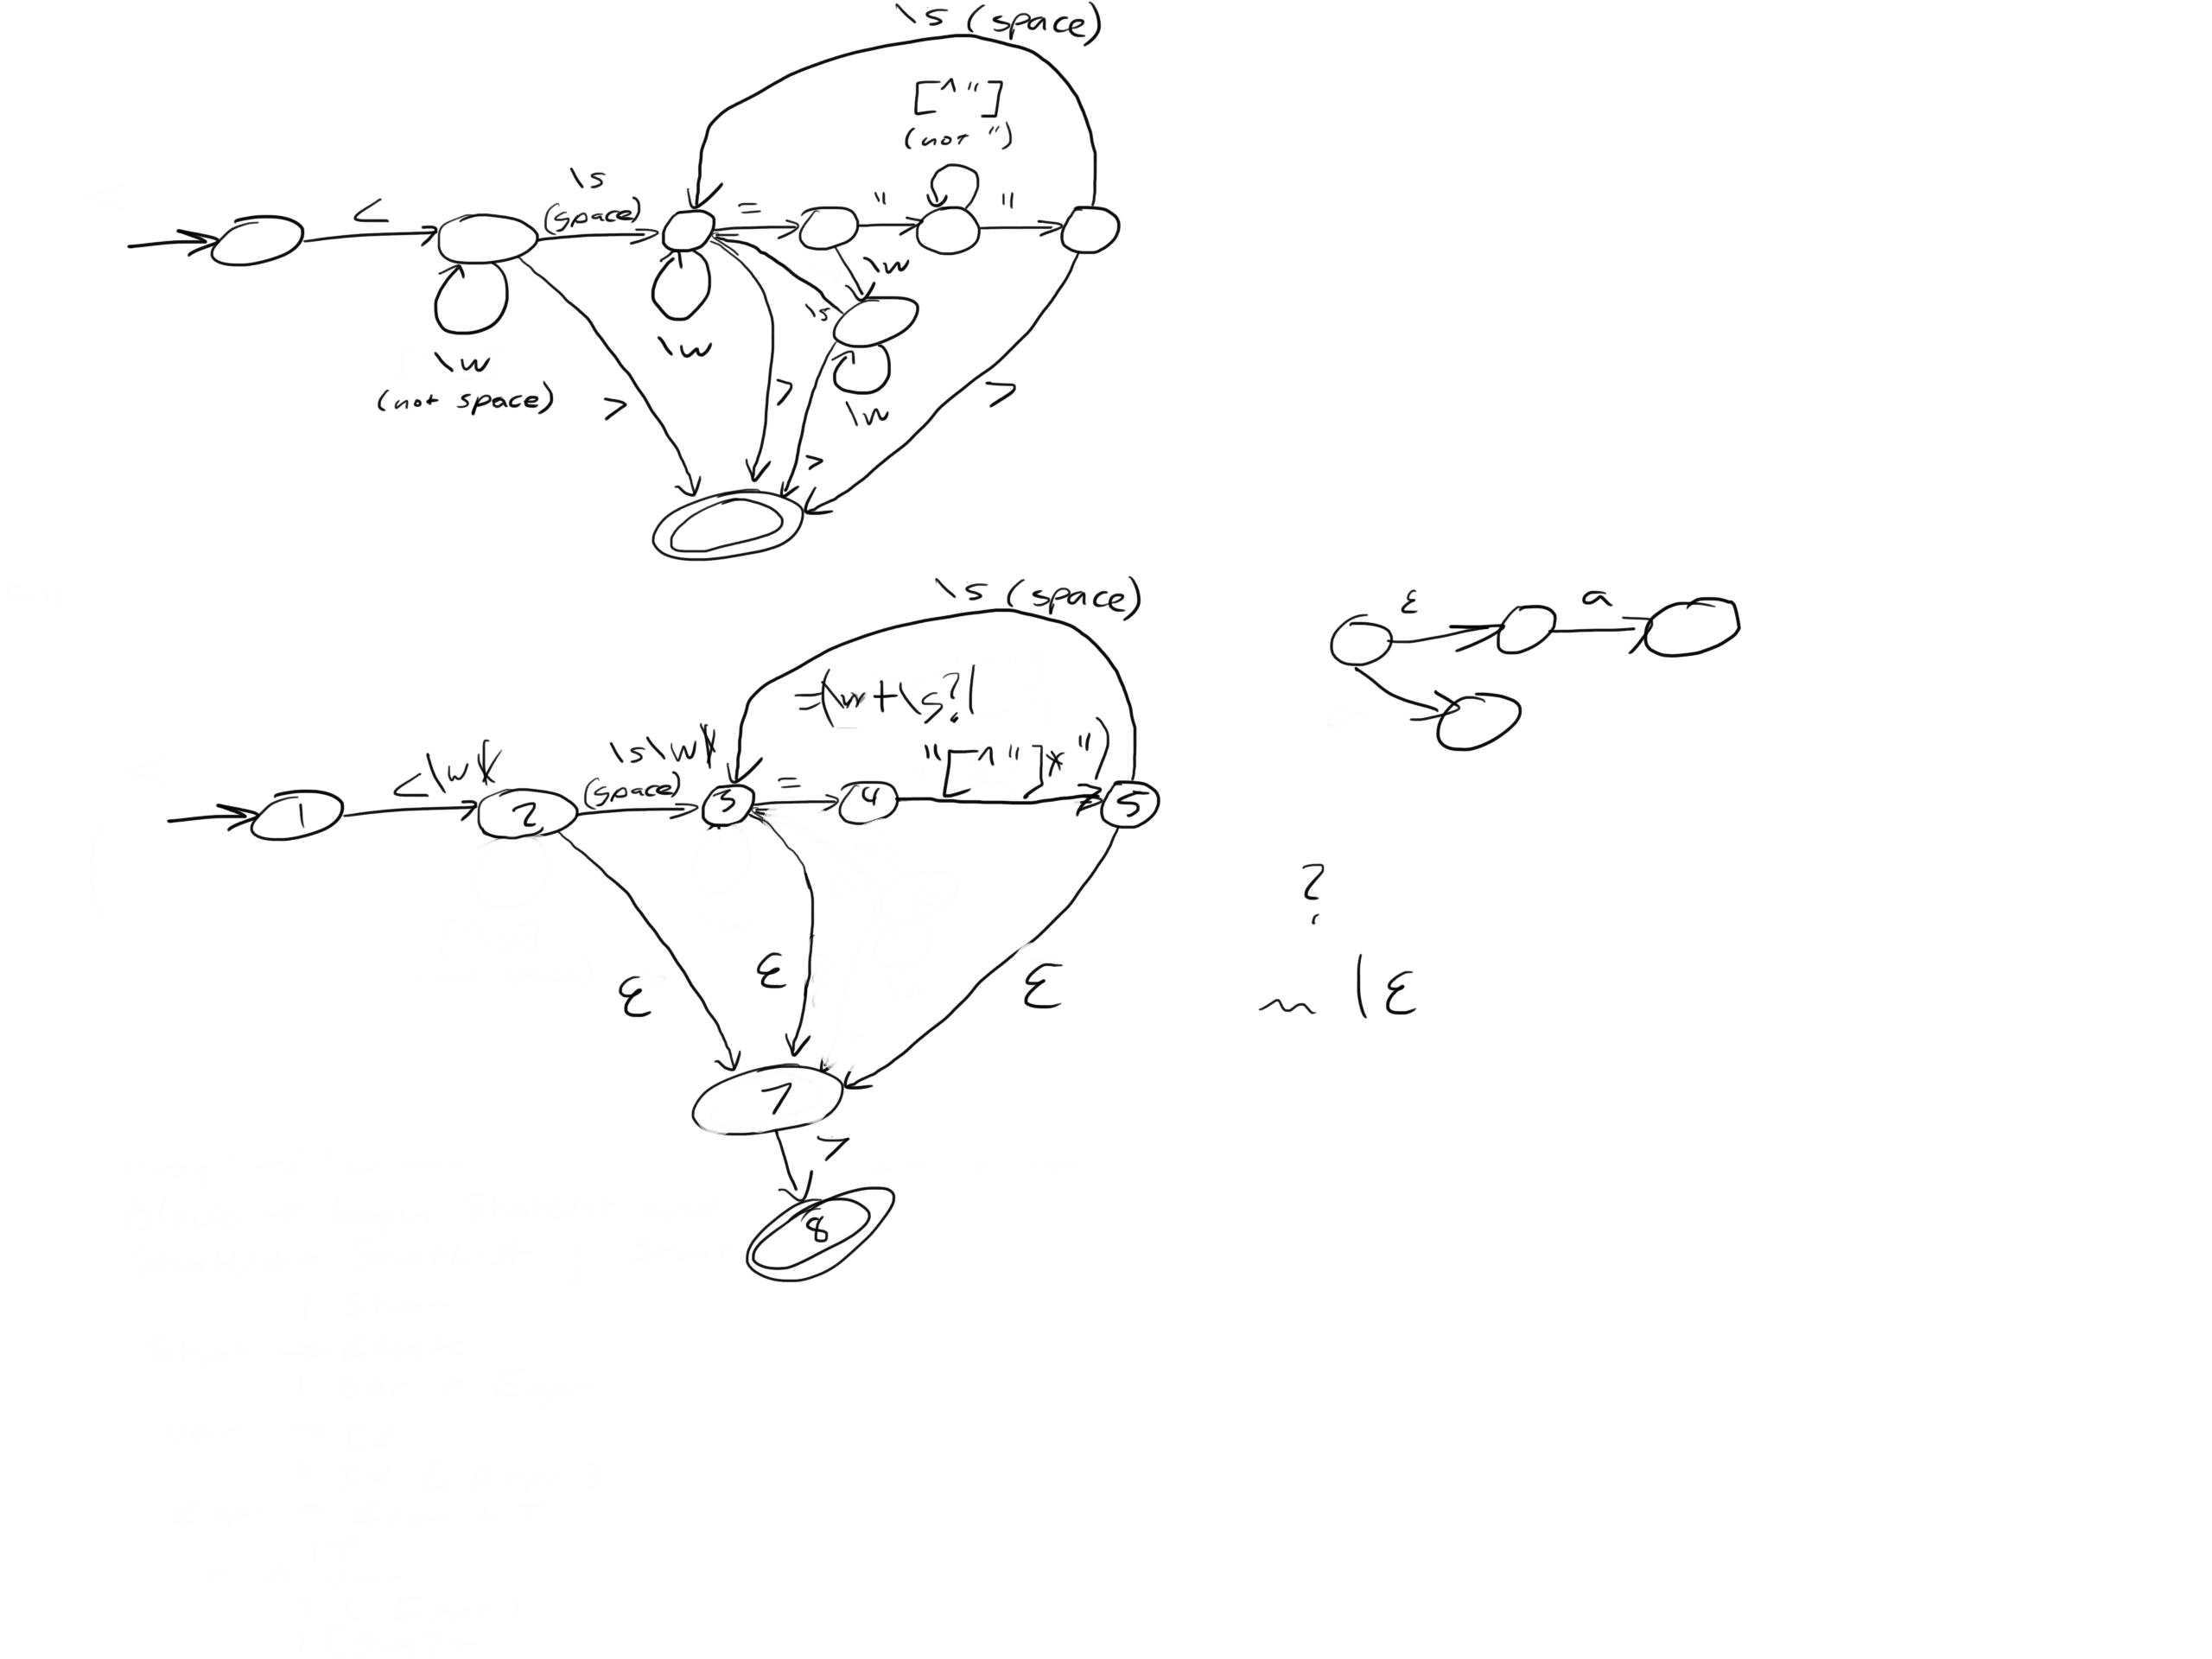 \s (space)
[^"]
(not ")
\s
(space)
<
=
"
"
\w
\s
\w
(not space)
\w
\w
>
>
>
>
\s (space)
ε
a
=(\w+\s?|
"[^"]*")
<\w*
\s\w*
(space)
=
1
2
3
4
5
?
ε
ε
ε
~ | ε
7
>
8